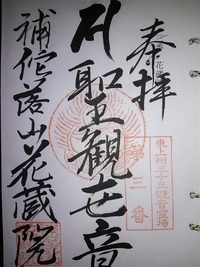 奉拝
聖観世音
補陀落山花蔵院
第三番
東上州三十三観音霊場